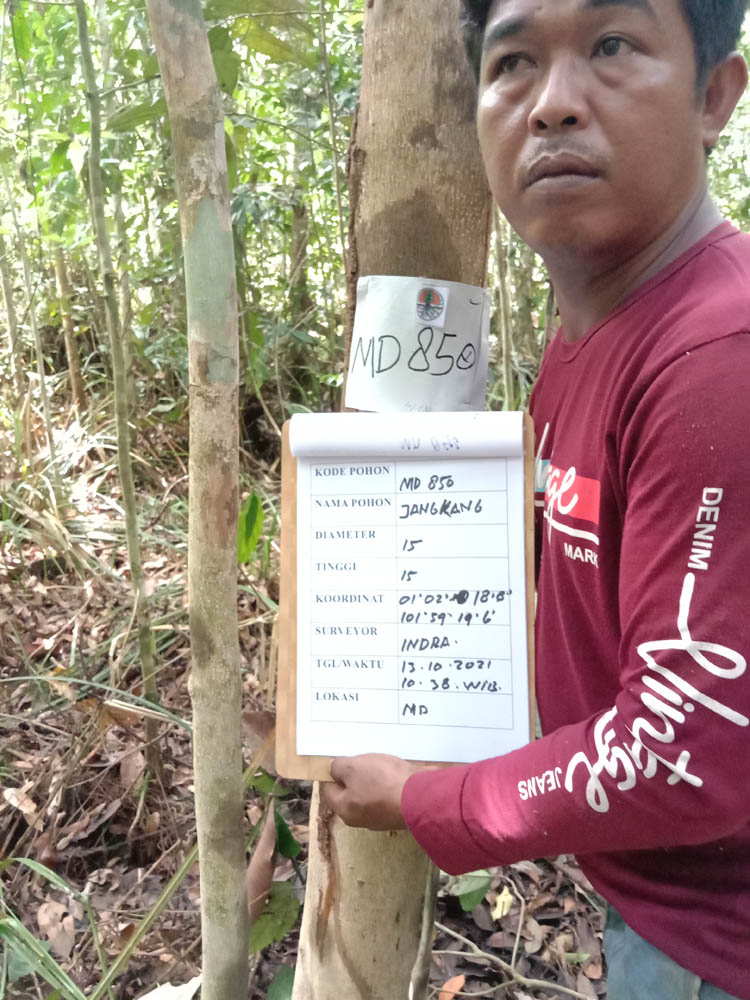 MD 850
KODE POHON MD 850
NAMA POHON JANGKANG
DIAMETER 15
TINGGI 15
KOORDINAT 01°02' 18.8"
101°59' 19.6"
SURVEYOR INDRA.
TGL/WAKTU 13.10.2021
10.38.WIB.
LOKASI MD
MARK
DENIM
Vintage
JEANS